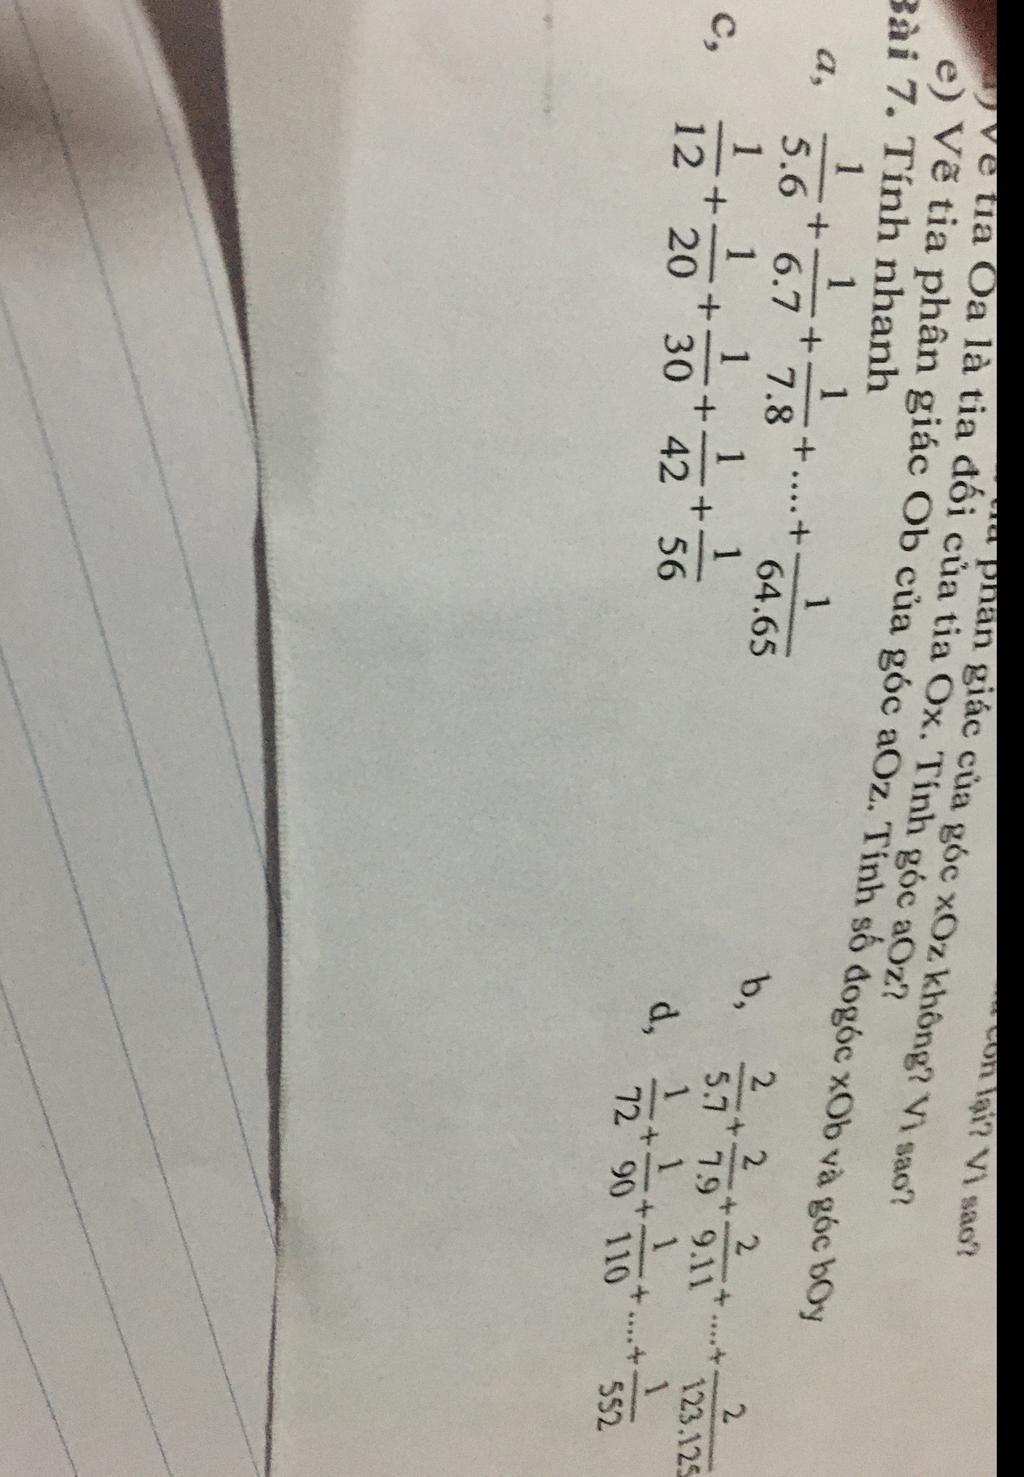 tia phân giác của góc xOz không? Vì sao?
Vẽ tia Oa là tia đối của tia Ox. Tính góc aOz?
e) Vẽ tia phân giác Ob của góc aOz. Tính số đogóc xOb và góc bOy
Bài 7. Tính nhanh
a, 1/5.6 + 1/6.7 + 1/7.8 + .... + 1/64.65
b, 2/5.7 + 2/7.9 + 2/9.11 + .... + 2/123.125
c, 1/12 + 1/20 + 1/30 + 1/42 + 1/56
d, 1/72 + 1/90 + 1/110 + .... + 1/552